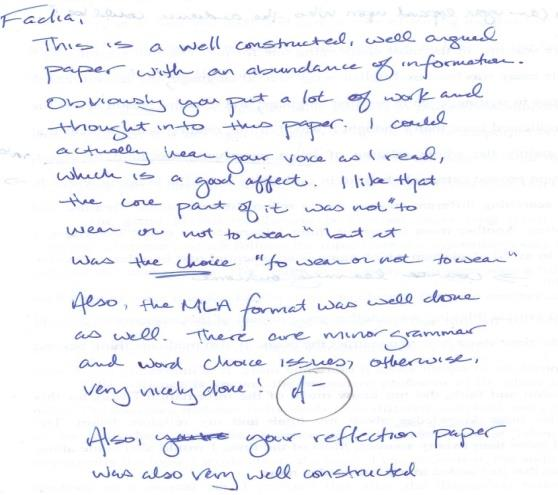 Fadia,
This is a well constructed, well argued
paper with an abundance of information.
Obviously you put a lot of work and
thought into this paper. I could
actually hear your voice as I read,
which is a good affect. I like that
the core part of it was not "to
wear or not to wear" but it
was the choice "to wear or not to wear"
Also, the MLA format was well done
as well. There are minor grammar
and word choice issues, otherwise,
very nicely done! A-
Also, your reflection paper
was also very well constructed